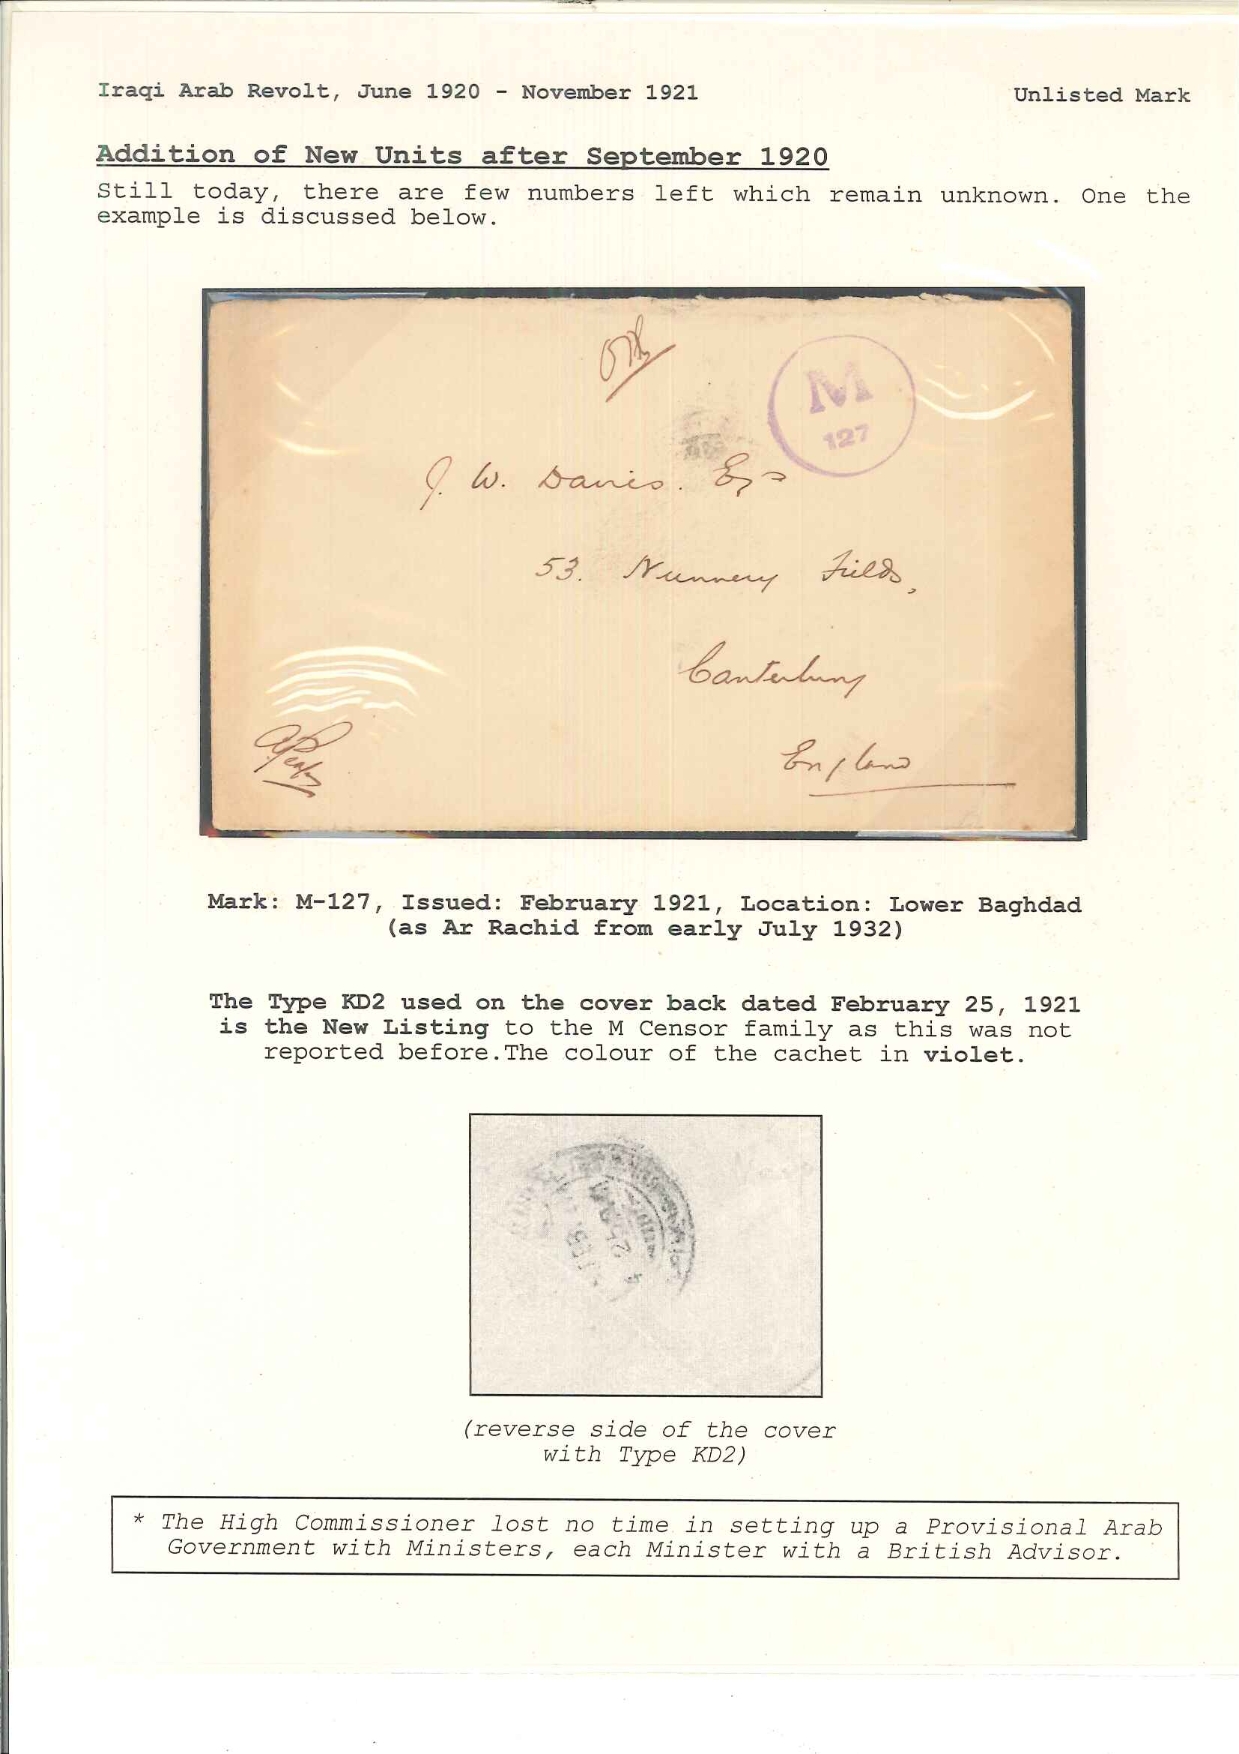 Iraqi Arab Revolt, June 1920 - November 1921
Unlisted Mark
Addition of New Units after September 1920
Still today, there are few numbers left which remain unknown. One the
example is discussed below.
M
127
J. W. Davies. Esq
53. Nunnery Fields,
Canterbury
England
Mark: M-127, Issued: February 1921, Location: Lower Baghdad
(as Ar Rachid from early July 1932)
The Type KD2 used on the cover back dated February 25, 1921
is the New Listing to the M Censor family as this was not
reported before.The colour of the cachet in violet.
(reverse side of the cover
with Type KD2)
* The High Commissioner lost no time in setting up a Provisional Arab
Government with Ministers, each Minister with a British Advisor.